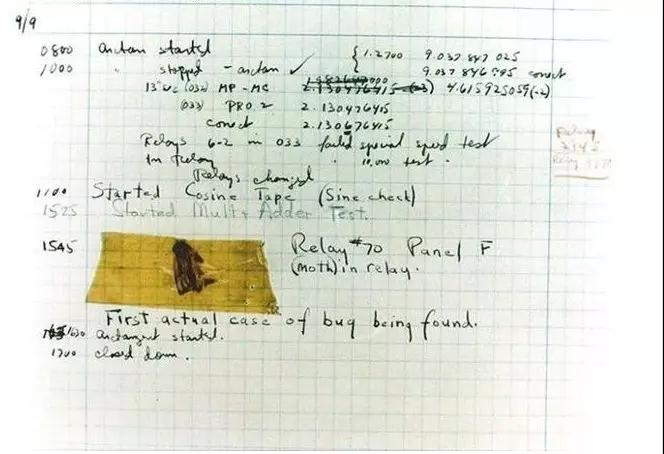 9/9
0800 antan started { 1.2700 9.037 847 025
1000 " stopped - antan ✓ 9.037 846 995 correct
13"uc (032) MP - MC 2.130476415 (-3) 4.615925059(-2)
(033) PRO 2 2.130476415
correct 2.130676415
Relays 6-2 in 033 failed special speed test
in relay " 10,000 test .
Relays changed
Relay
2145
Relay 3370
1100 Started Cosine Tape (Sine check)
1525 Started Mult+Adder Test.
1545 Relay #70 Panel F
(moth) in relay.
First actual case of bug being found.
1630 antangent started.
1700 closed down.